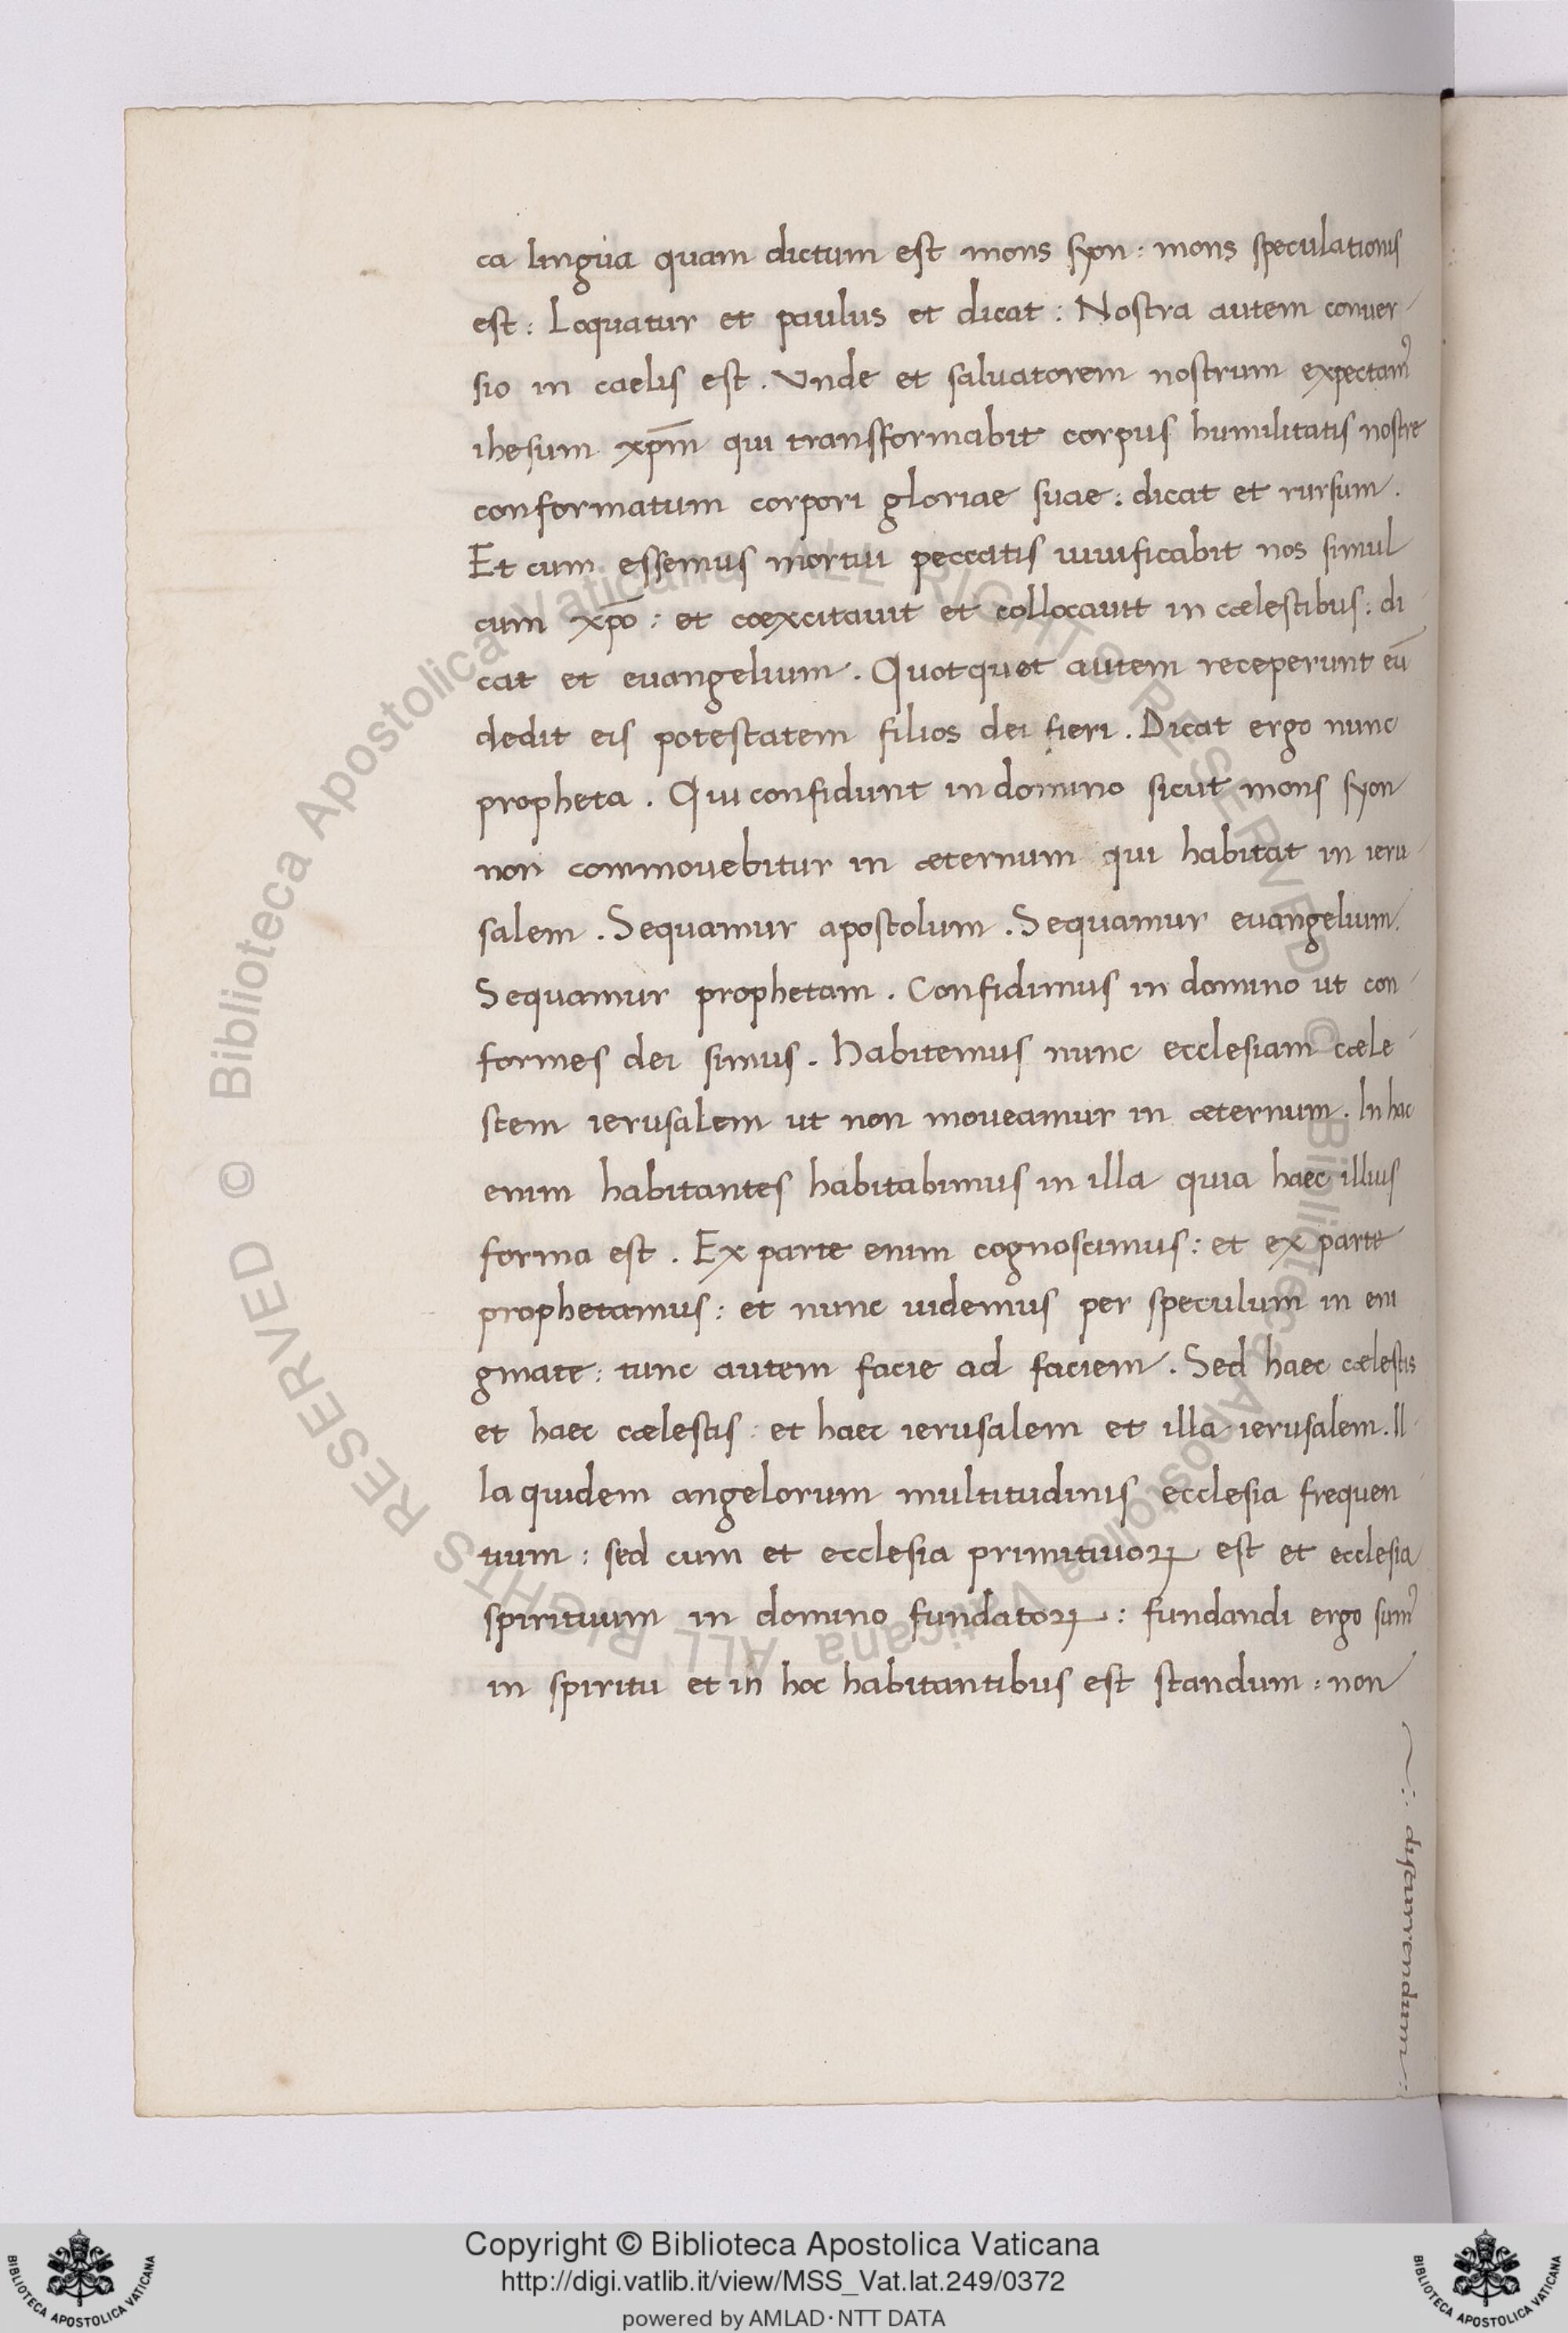 ca lingua quam dictum est mons syon: mons speculationis
est: Loquatur et paulus et dicat: Nostra autem conuer-
sio in caelis est. Vnde et saluatorem nostrum expectamꝰ
ihesum xp̄m qui transformabit corpus humilitatis nostre
conformatum corpori gloriae suae: dicat et rursum.
Et cum essemus mortui peccatis uiuificabit nos simul
cum xp̄o: et coexcitauit et collocauit in cælestibus: di
cat et euangelium. Quotquot autem receperunt eū
dedit eis potestatem filios dei fieri. Dicat ergo nunc
propheta. Qui confidunt in domino sicut mons syon
non commouebitur in æternum qui habitat in ieru-
salem. Sequamur apostolum. Sequamur euangelium.
Sequamur prophetam. Confidimus in domino ut con-
formes dei simus. Habitemus nunc ecclesiam cæle-
stem ierusalem ut non moueamur in æternum. In hac
enim habitantes habitabimus in illa quia haec illius
forma est. Ex parte enim cognoscimus: et ex parte
prophetamus: et nunc uidemus per speculum in eni
gmate: tunc autem facie ad faciem. Sed haec cælestis
et haec cælestis: et haec ierusalem et illa ierusalem. Il-
la quidem angelorum multitudinis ecclesia frequen
tium: sed cum et ecclesia primitiuoꝝ est et ecclesia
spirituum in domino fundatoꝝ: fundandi ergo sumꝰ
in spiritu et in hoc habitantibus est standum: non
discurrendum:
© Biblioteca Apostolica Vaticana ALL RIGHTS RESERVED © Biblioteca Apostolica Vaticana ALL RIGHTS RESERVED
BIBLIOTECA APOSTOLICA VATICANA
Copyright © Biblioteca Apostolica Vaticana
http://digi.vatlib.it/view/MSS_Vat.lat.249/0372
powered by AMLAD·NTT DATA
BIBLIOTECA APOSTOLICA VATICANA